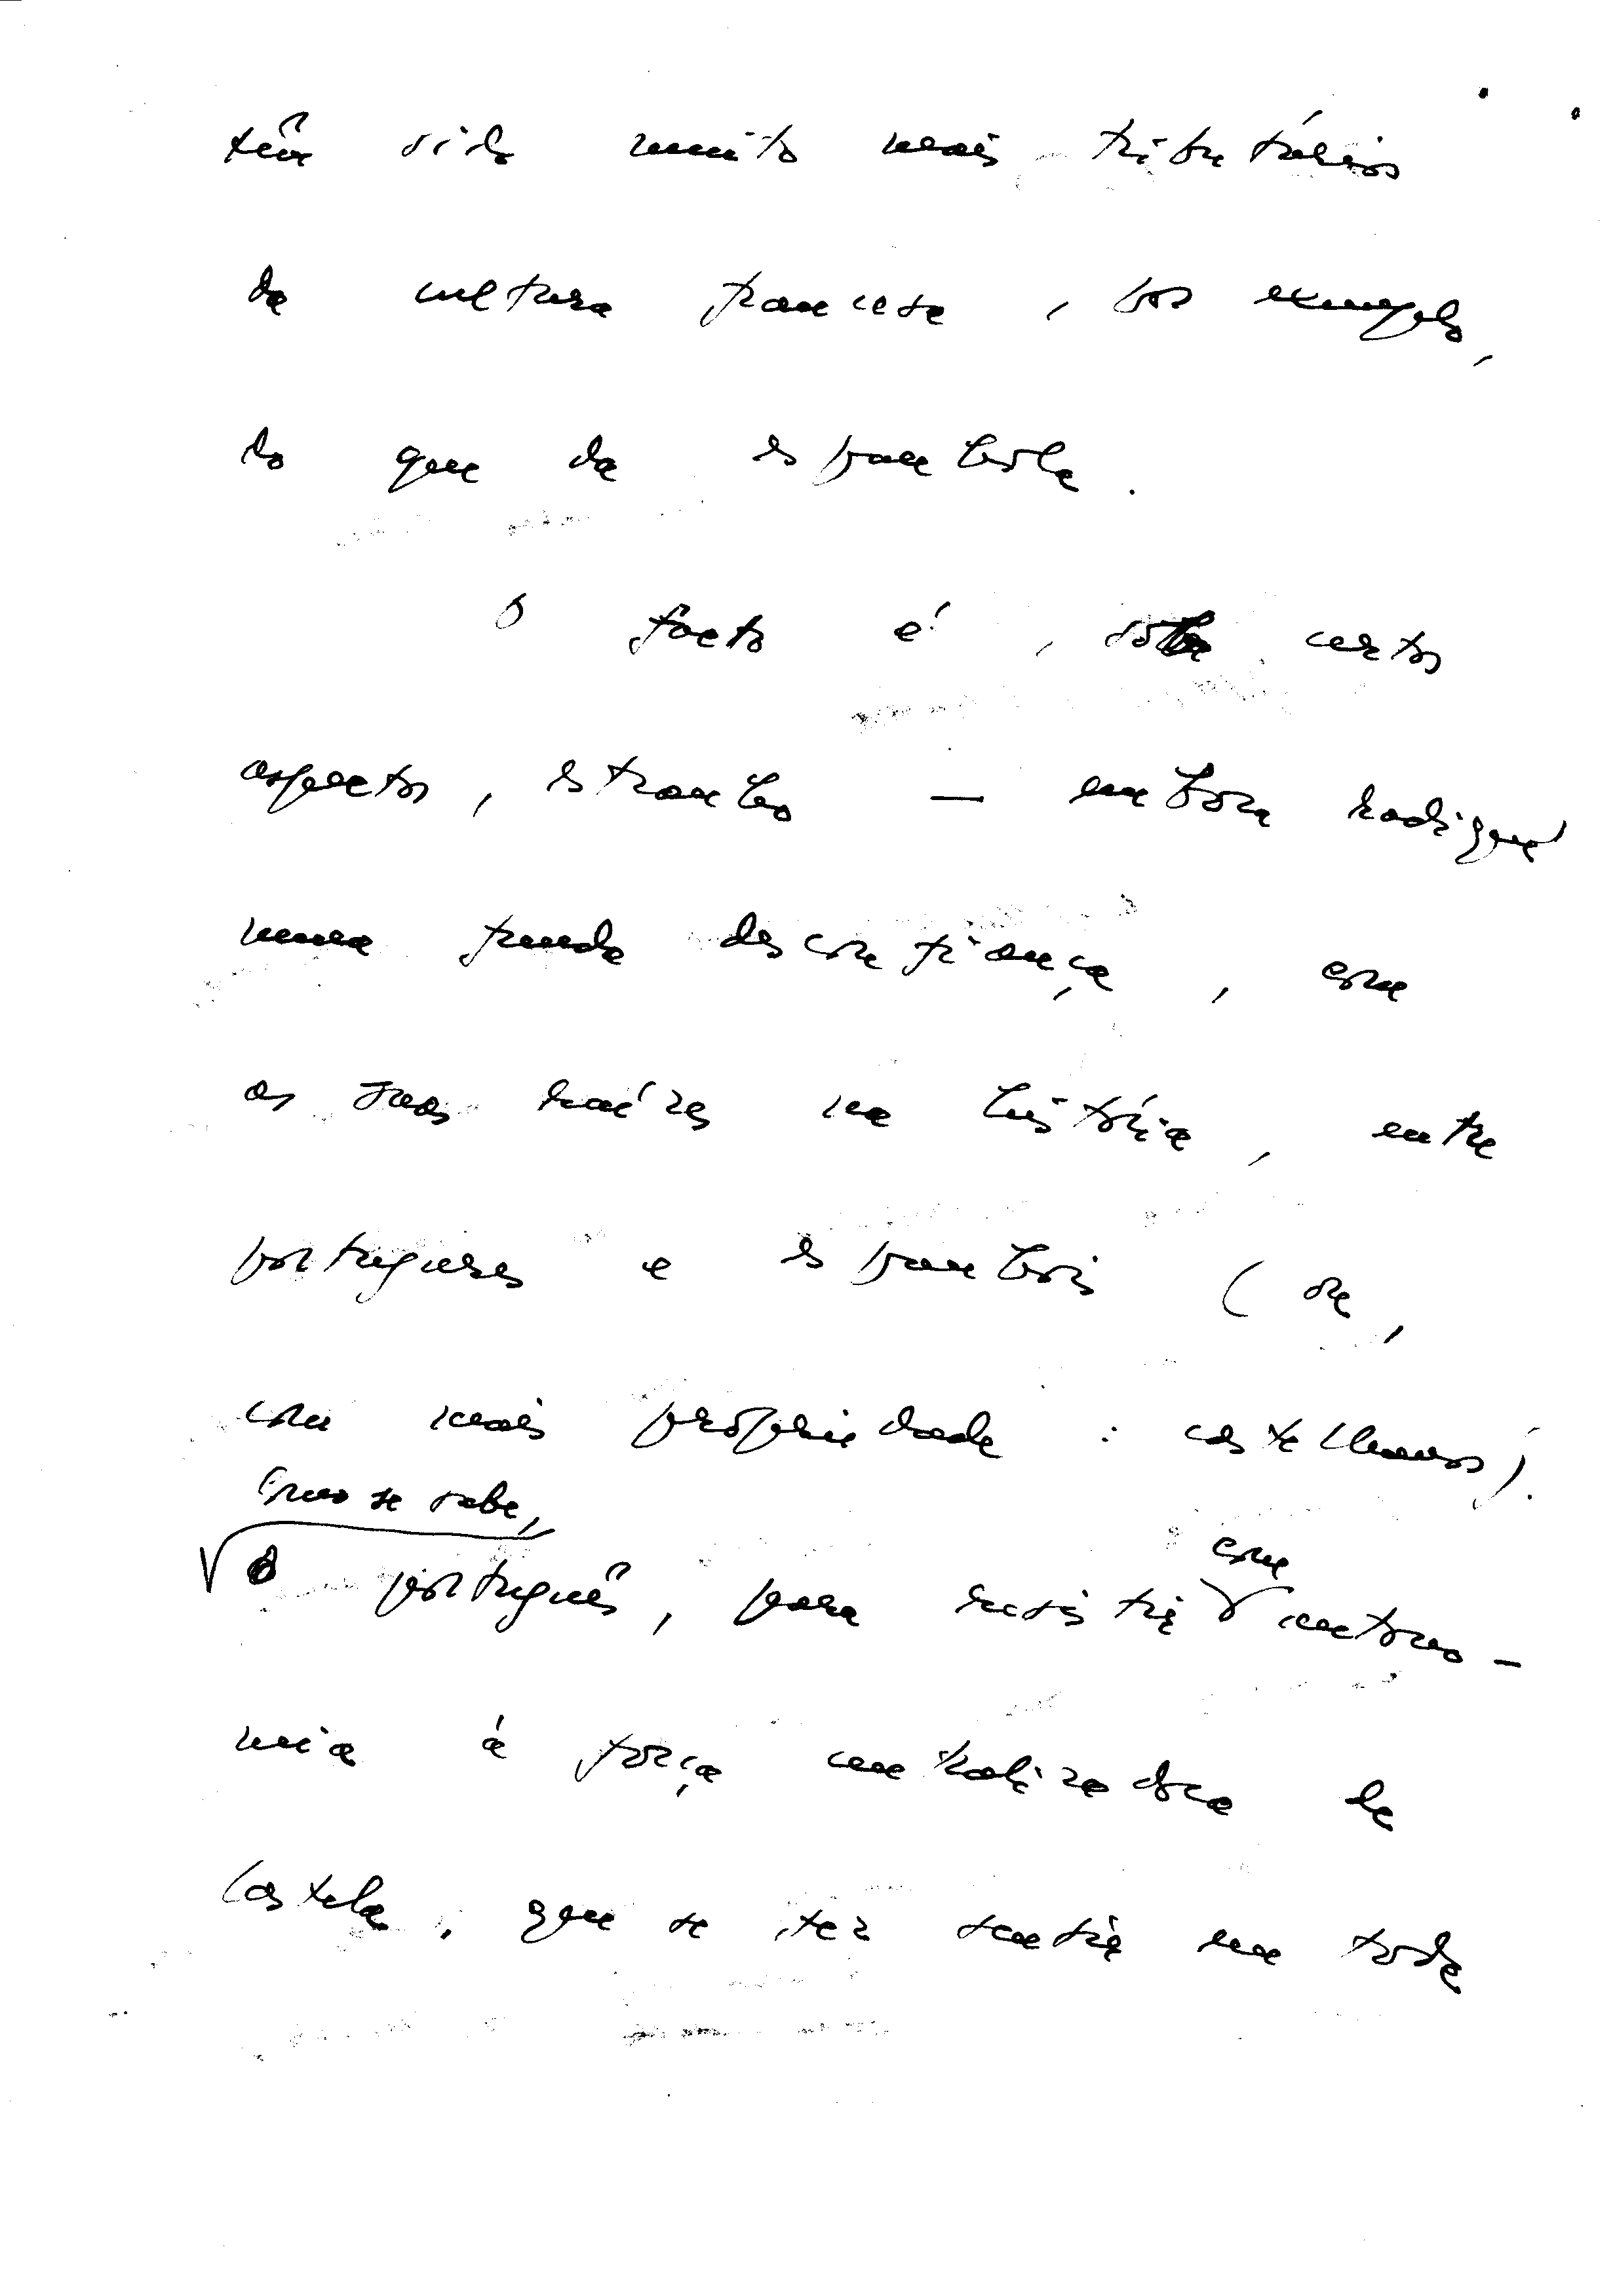 têm sido muito mais tributários
da cultura francesa, por exemplo,
do que da espanhola.
O facto é, sob certos
aspectos, estranho — embora radique
numa funda desconfiança, com
as suas raízes na história, entre
portugueses e espanhóis (ou,
com mais propriedade: castelhanos).
Como se sabe,
o português, para resistir com autono-
mia à força centralizadora de
Castela, que se fez sentir em toda